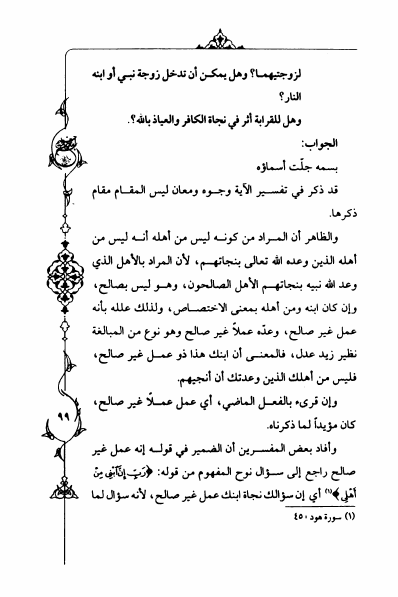 لزوجتيهما؟ وهل يمكن أن تدخل زوجة نبي أو ابنه
النار؟
وهل للقرابة أثر في نجاة الكافر والعياذ بالله؟.
الجواب:
بسمه جلّت أسماؤه
قد ذكر في تفسير الآية وجوه ومعان ليس المقام مقام
ذكرها.
والظاهر أن المراد من كونه ليس من أهله أنه ليس من
أهله الذين وعده الله تعالى بنجاتهم، لأن المراد بالأهل الذي
وعد الله نبيه بنجاتهم الأهل الصالحون، وهو ليس بصالح،
وإن كان ابنه ومن أهله بمعنى الاختصاص، ولذلك علله بأنه
عمل غير صالح، وعدّه عملاً غير صالح وهو نوع من المبالغة
نظير زيد عدل، فالمعنى أن ابنك هذا ذو عمل غير صالح،
فليس من أهلك الذين وعدتك أن أنجيهم.
وإن قرىء بالفعل الماضي، أي عمل عملاً غير صالح،
كان مؤيداً لما ذكرناه.
وأفاد بعض المفسرين أن الضمير في قوله إنه عمل غير
صالح راجع إلى سؤال نوح المفهوم من قوله: ﴿رَبِّ إِنَّ ابْنِي مِنْ
أَهْلِي﴾(١) أي إن سؤالك نجاة ابنك عمل غير صالح، لأنه سؤال لما
(١) سورة هود: ٤٥.
٩٩